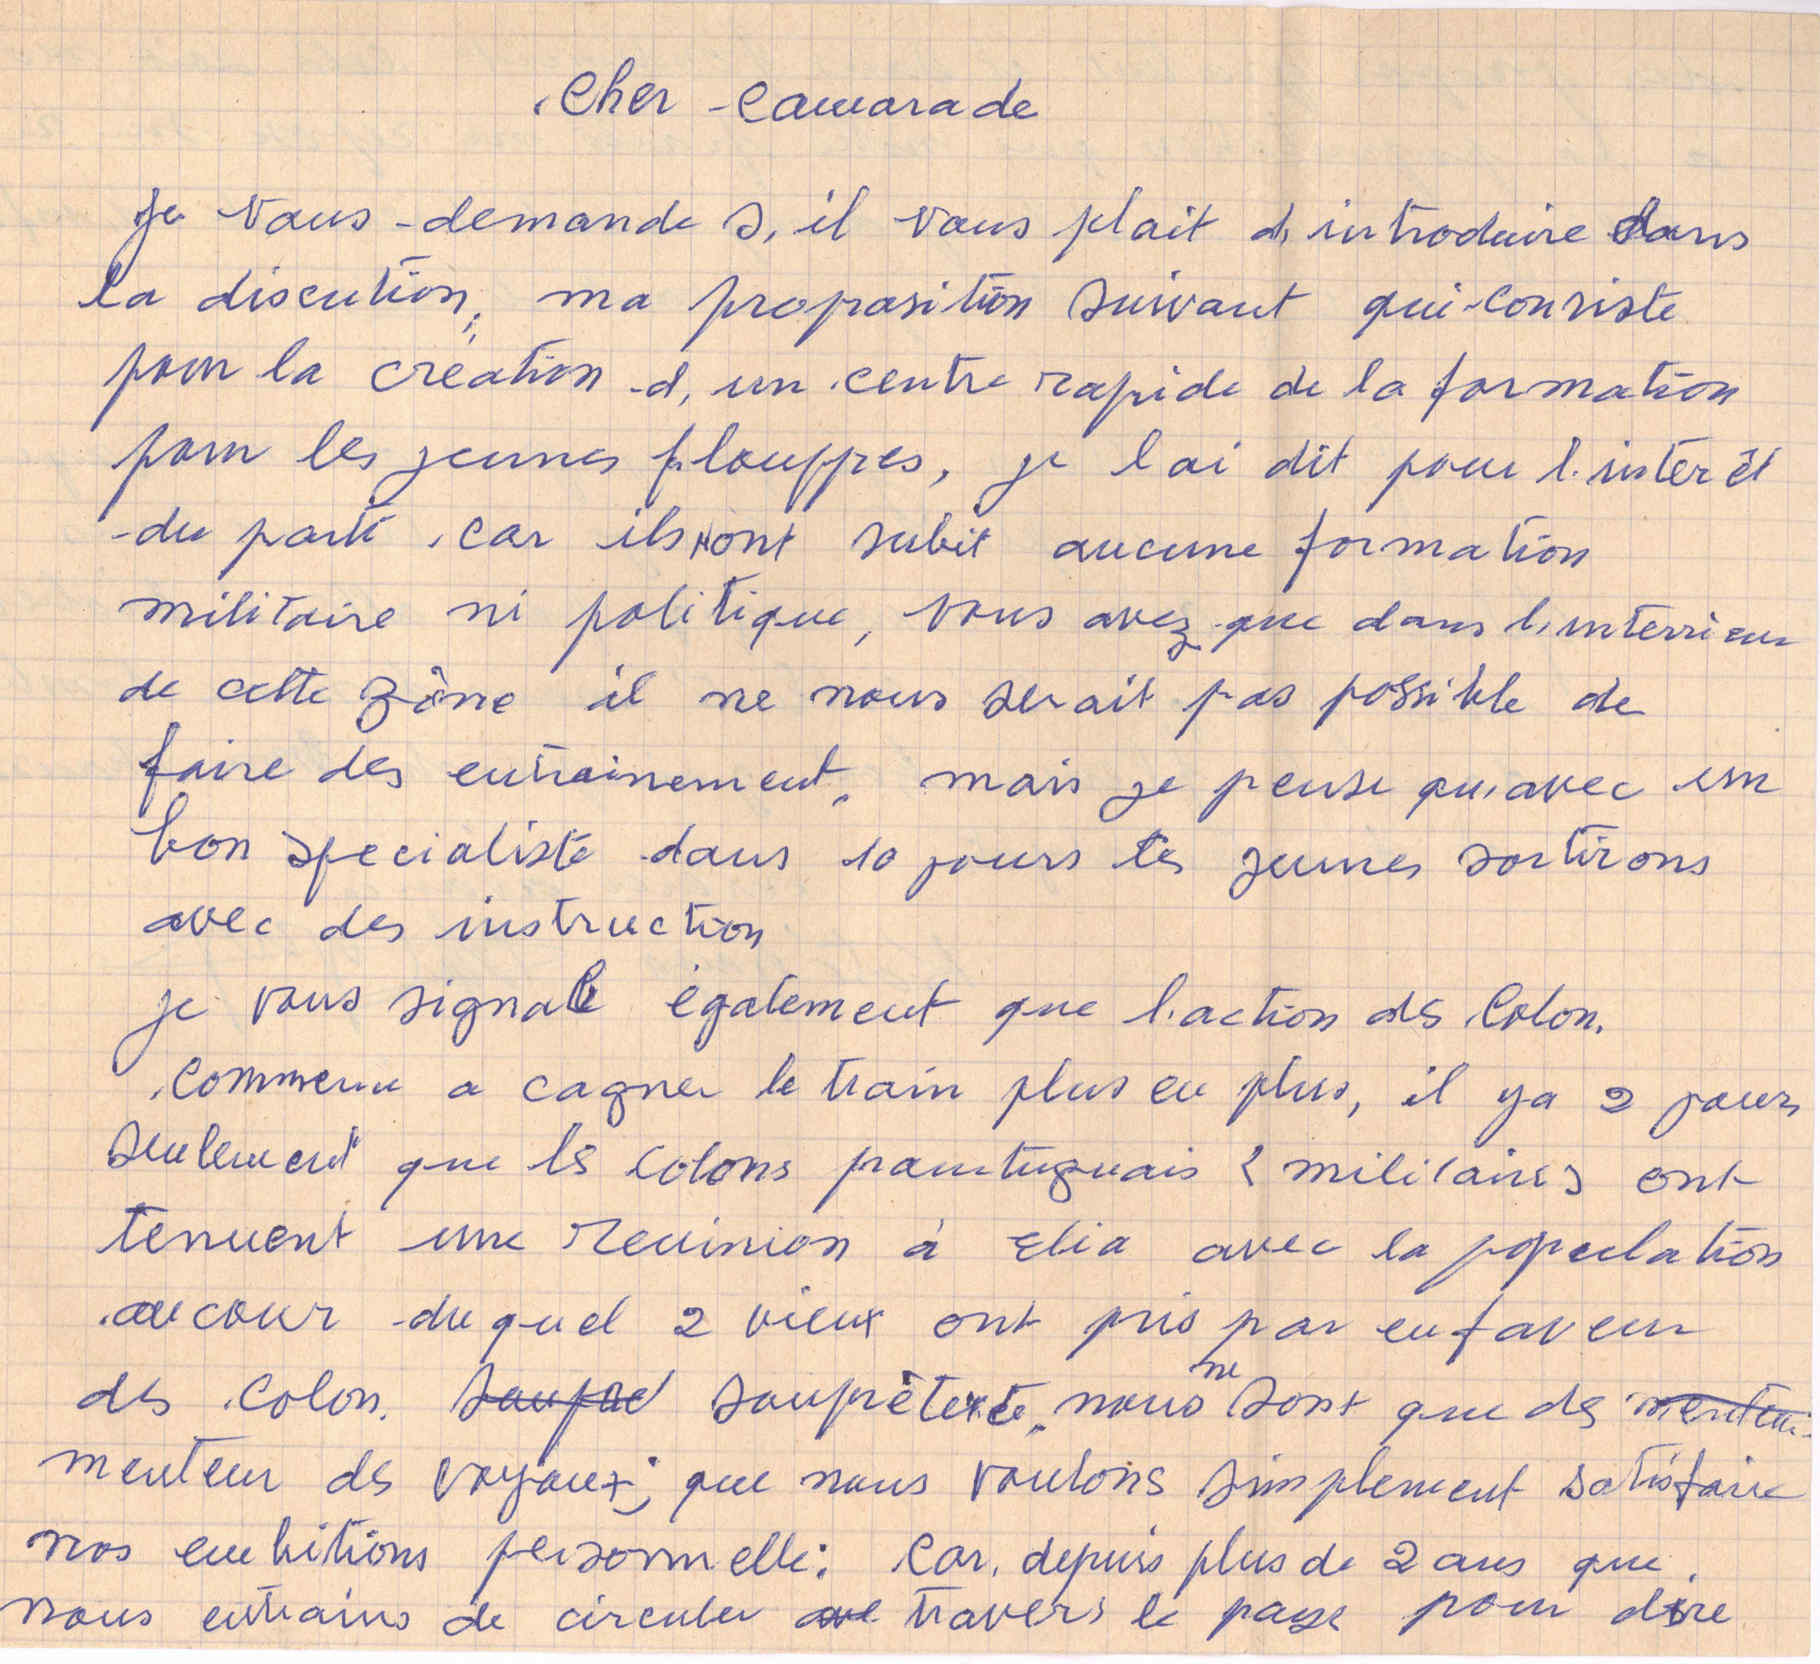 Cher Camarade
je vous demande s, il vous plait d, introduire dans
la discution, ma proposition suivant qui consiste
pour la création d, un centre rapide de la formation
pour les jeunes flouppes, je l ai dit pour l. interêt
du parti, car ils n'ont subit aucune formation
militaire ni politique, vous avez que dans l, interrieur
de cette zône il ne nous serait pas possible de
faire des entrainement, mais je pense qu, avec un
bon specialiste dans 10 jours les jeunes sortirons
avec des instruction
je vous signale également que l. action des Colon.
Commence a cagner le train plus en plus, il ya 2 jours
seulement que les colons pourtuguais (militaires) ont
tenuent une reuinion à Elia avec la population
au cour du quel 2 vieux ont pris par en faveur
des Colon. souprêtexte, nous ne sont que des menteu
menteur des voyoux; que nous voulons simplement satisfaire
nos embitions personnelle: Car, depuis plus de 2 ans que
nous entrains de circuler travers le pays pour dire